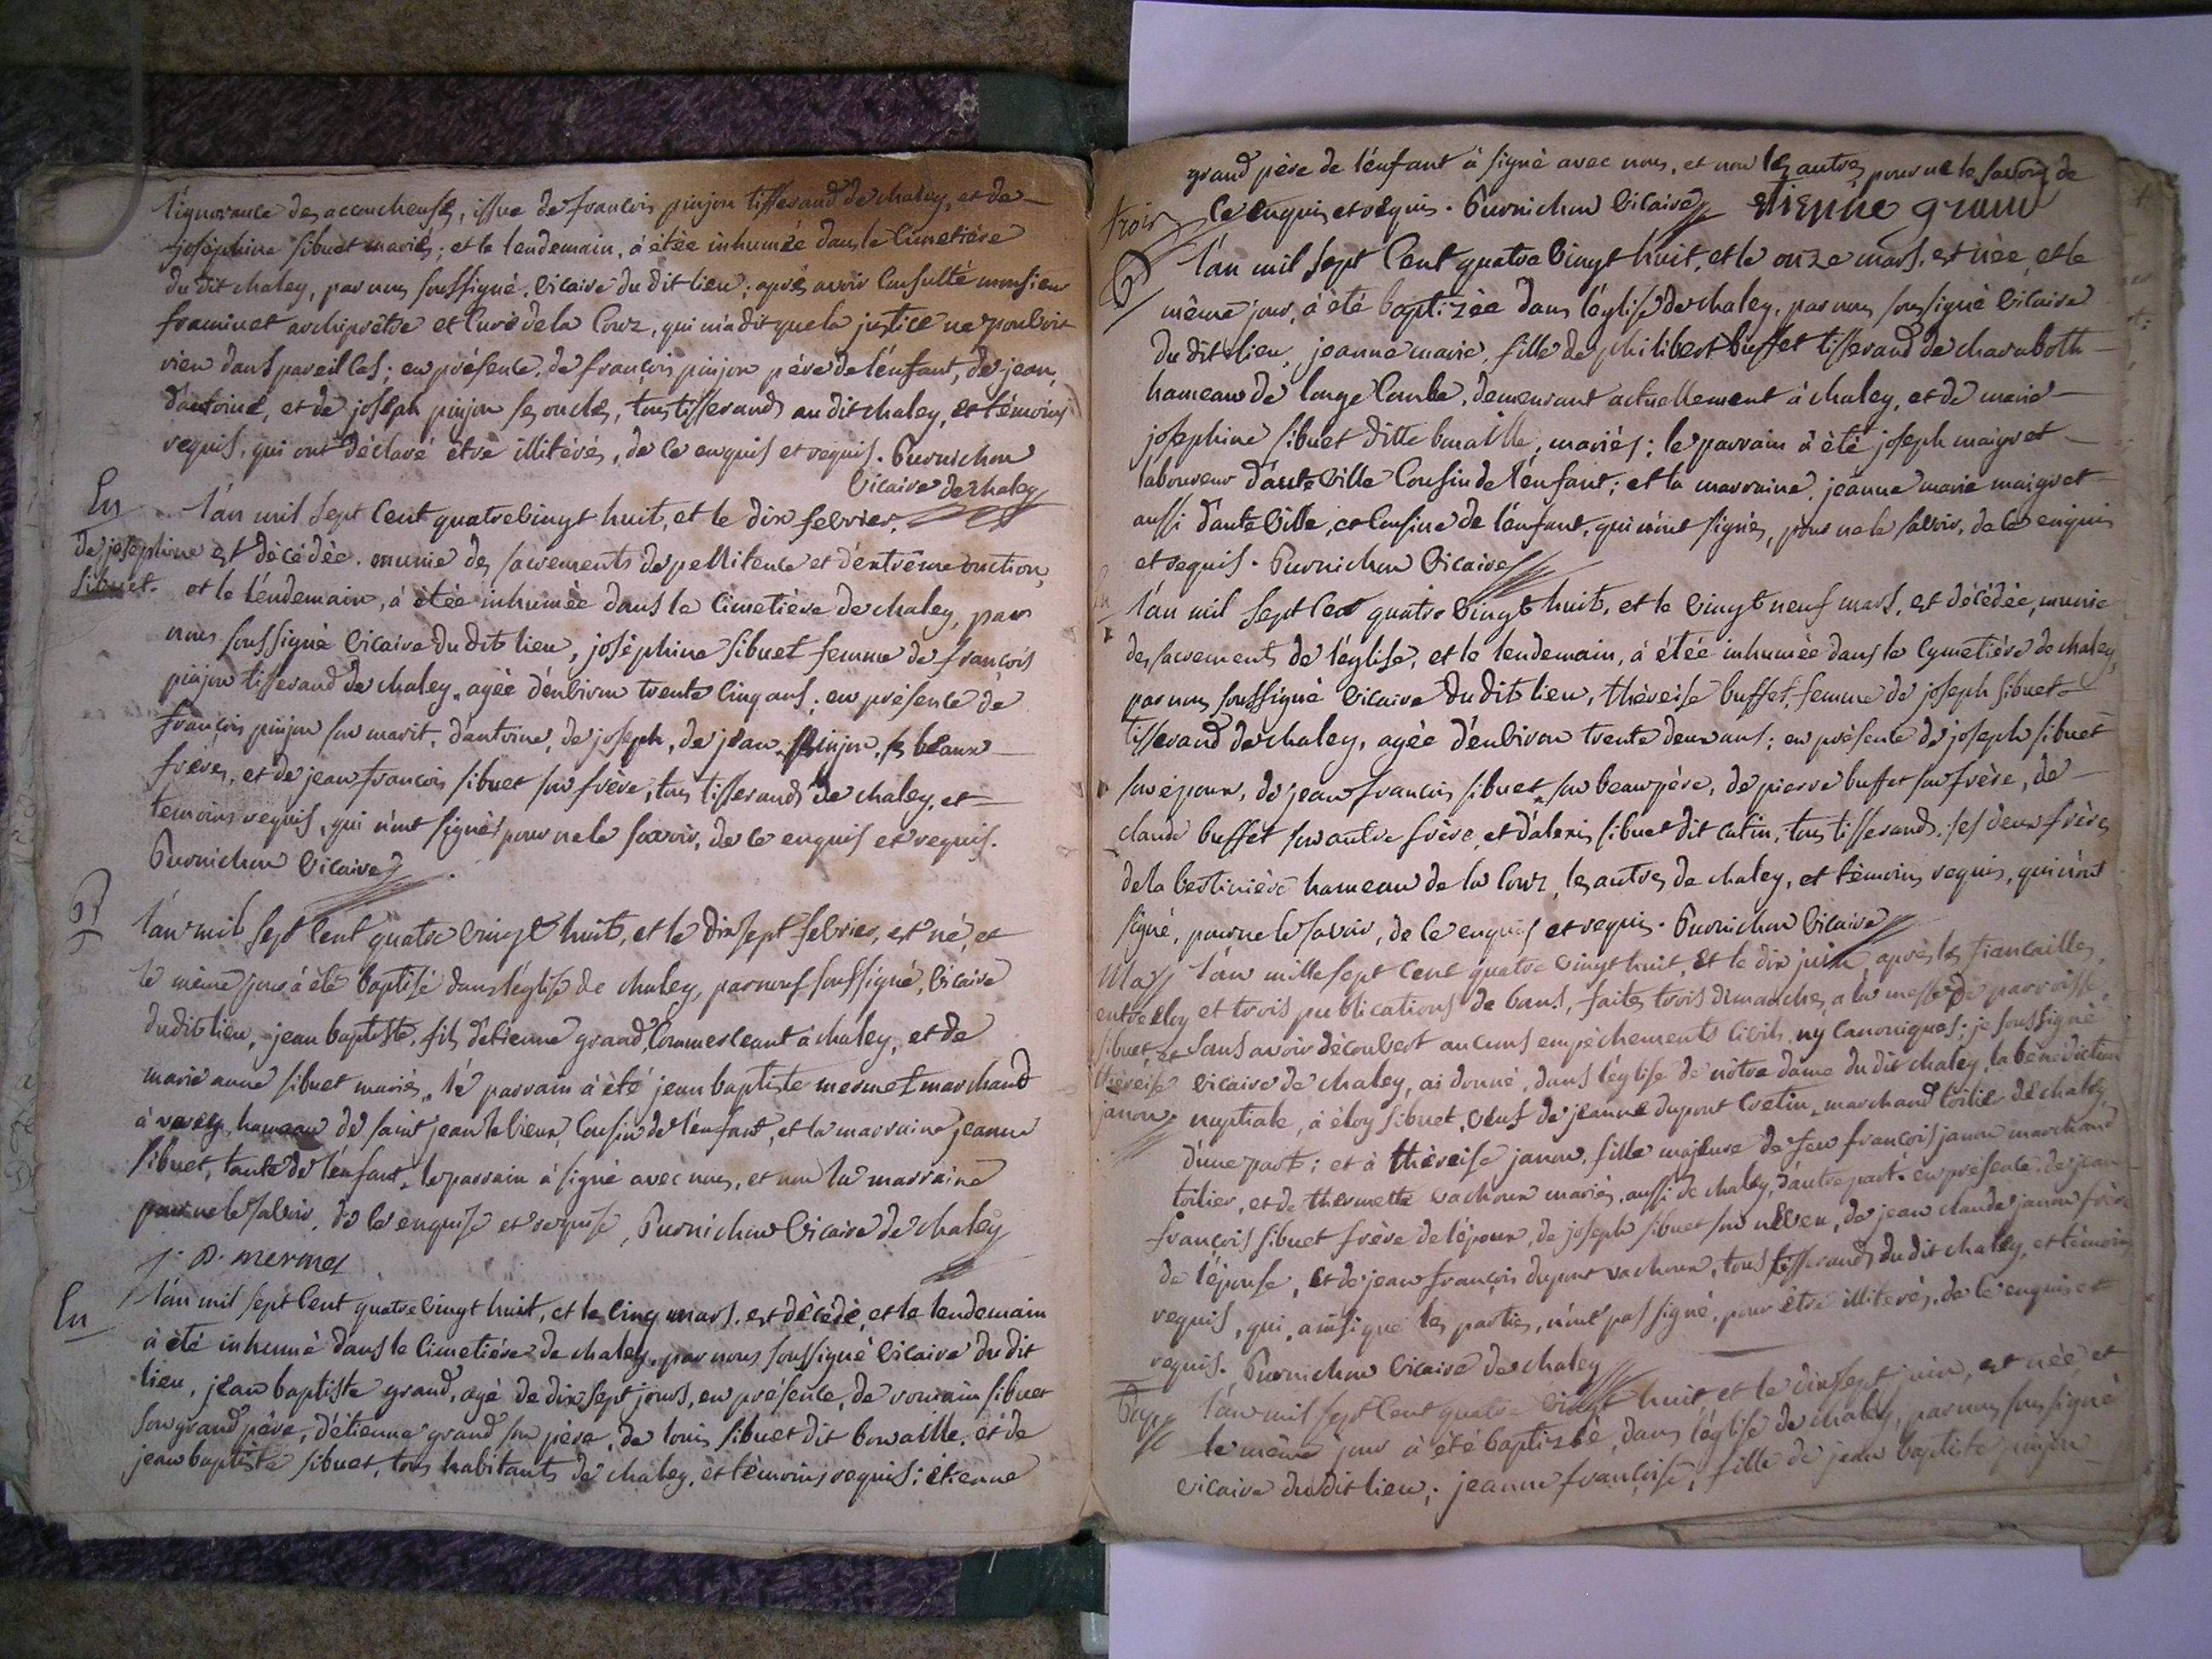 l'ignorance des accoucheuses, issue de francois pinjon tisserand de chaley, et de
joséphine sibuet mariés; et le lendemain, à étée inhumée dans le cimetière
du dit chaley, par nous soussigné vicaire du dit lieu; après avoir consulté monsieur
framinet archiprêtre et curé de la Corz, qui m'a dit que la justice ne pouvoit
rien dans pareil cas; en présence de françois pinjon père de l'enfant, de jean,
d'antoine, et de joseph pinjon ses oncles, tous tisserands au dit chaley, et témoins
requis, qui ont déclaré etre illitérés, de ce enquis et requis. Burnichon
vicaire de chaley
En l'an mil sept cent quatre vingt huit, et le dix febvrier,
de josephine est décédée, munie des sacrements de pénitence et d'extrême onction,
sibuet. et le lendemain, à étée inhumée dans le cimetière de chaley, par
nous soussigné vicaire du dit lieu, joséphine sibuet femme de francois
pinjon tisserand de chaley, agée d'environ trente cinq ans; en présence de
francois pinjon son marit, d'antoine, de joseph, de jean pinjon, ses beaux
frères, et de jean francois sibuet son frère, tous tisserands de chaley, et
temoins requis, qui n'ont signés pour ne le savoir, de ce enquis et requis.
Burnichon vicaire
B l'an mil sept cent quatre vingt huit, et le dix sept febvrier, est né, et
le même jour à été baptisé dans l'église de chaley, par nous soussigné, vicaire
du dit lieu, jean baptiste, fils d'etienne grand, commerceant à chaley, et de
marie anne sibuet mariés, le parrain à été jean baptiste mermet marchand
à varey hameau de saint jean le vieux, cousin de l'enfant, et la marraine jeanne
sibuet, tante de l'enfant, le parrain à signé avec nous, et non la marraine
pour ne le savoir, de ce enquise et requise, Burnichon vicaire de chaley
j. B. mermet
En l'an mil sept cent quatre vingt huit, et le cinq mars, est décédé, et le lendemain
à été inhumé dans le cimetière de chaley, par nous soussigné vicaire du dit
lieu, jean baptiste grand, agé de dix sept jours, en présence, de romain sibuet
son grand père, d'étienne grand son père, de louis sibuet dit bouaille, et de
jean baptiste sibuet, tous habitants de chaley, et témoins requis; étienne
grand père de l'enfant à signé avec nous, et non les autres pour ne le savoir, de
trois ce enquis et requis. Burnichon vicaire etienne grand
B l'an mil sept cent quatre vingt huit, et le onze mars, est née, et le
même jour, à été baptizée dans l'église de chaley, par nous soussigné vicaire
du dit lieu, jeanne marie, fille de philibert buffet tisserand de charaboth
hameau de longe Combe, demeurant actuellement à chaley, et de marie
josephine sibuet ditte bouaille, mariés; le parrain à été joseph maigret
laboureur d'auteville cousin de l'enfant; et la marraine, jeanne marie maigret
aussi d'auteville, et cousine de l'enfant, qui n'ont signés, pour ne le savoir, de ce enquis
et requis. Burnichon vicaire
En l'an mil sept cent quatre vingt huit, et le vingt neuf mars, est décédée, munie
des sacrements de l'église, et le lendemain, à étée inhumée dans le cymetière de chaley,
par nous soussigné vicaire du dit lieu, théreise buffet, femme de joseph sibuet
tisserand de chaley, agée d'environ trente deux ans; en présence de joseph sibuet
son époux, de jean francois sibuet son beau père, de pierre buffet son frère, de
claude buffet son autre frère, et d'alexis sibuet dit catin, tous tisserands, ses deux frères
de la bertinière hameau de la Corz, les autres de chaley, et témoins requis, qui n'ont
signé, pour ne le savoir, de ce enquis et requis. Burnichon vicaire
Mass l'an mille sept cent quatre vingt huit, et le dix juin, après les fiancailles,
entre eloy et trois publications de bans, faites trois dimanches, a la messe de parroisse,
sibuet, et sans avoir découvert aucuns empêchements civils, ny canoniques; je soussigné
théreise vicaire de chaley, ai donné, dans l'église de nôtre dame du dit chaley, la bénédiction
janon. nuptiale, à éloy sibuet, veuf de jeanne dupont cretin, marchand toilier de chaley
d'une part; et à théreise janon, fille majeure de feu francois janon marchand
toilier, et de thermette vachoux mariés, aussi de chaley, d'autre part. en présence de jean
francois sibuet frère de l'époux, de joseph sibuet son neveu, de jean claude janon frère
de l'épouse, et de jean francois dupont vachoux, tous tisserands du dit chaley, et témoins
requis, qui, ainsi que les parties, n'ont pas signé, pour être illiterés, de ce enquis et
requis. Burnichon vicaire de chaley
Bap l'an mil sept cent quatre vingt huit, et le dix sept juin, est née, et
le même jour à été baptisée, dans l'église de chaley, par nous soussigné
vicaire du dit lieu; jeanne françoise, fille de jean baptiste pinjon